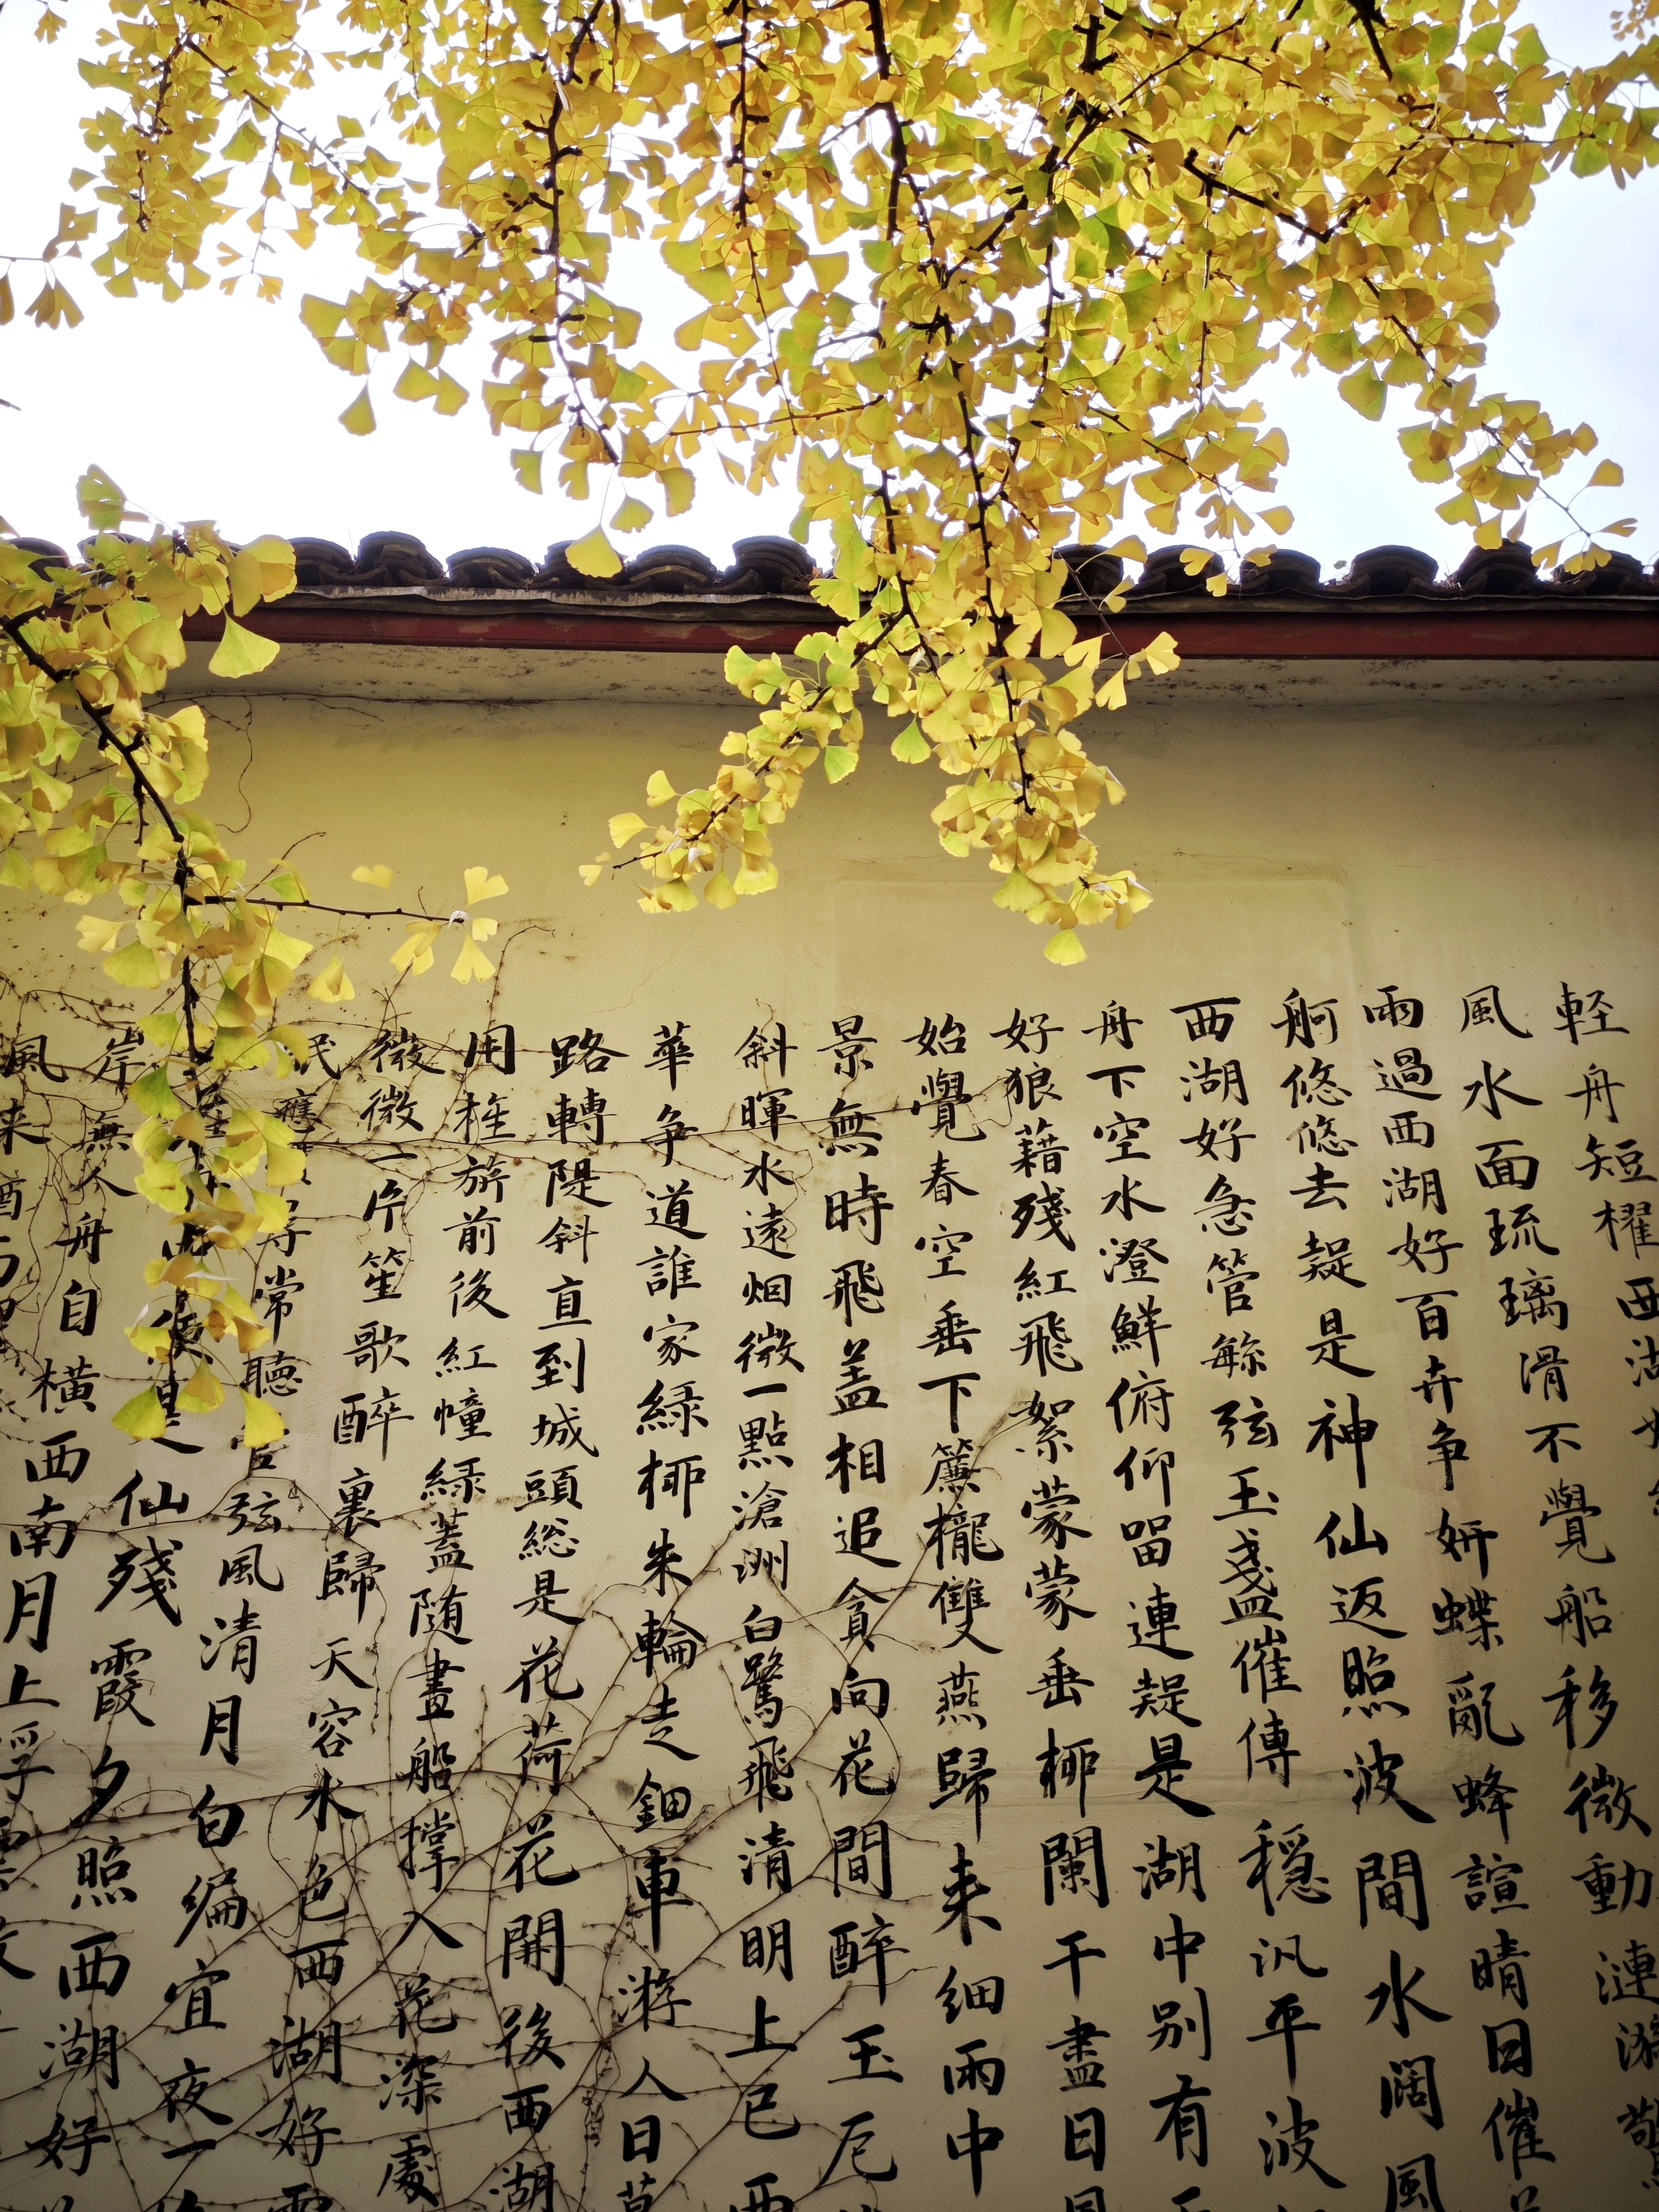 輕舟短櫂西湖好
風水面琉璃滑不覺船移微動漣漪
雨過西湖好百卉争妍蝶亂蜂諠晴日催
舸悠悠去疑是神仙返照波間水闊風
西湖好急管繁弦玉盞催傳穩汎平波
舟下空水澄鮮俯仰留連疑是湖中别有
好狼藉殘紅飛絮蒙蒙垂柳闌干盡日
始覺春空垂下簾櫳雙燕歸来細雨中
景無時飛盖相追貪向花間醉玉卮
斜暉水遠烟微一點滄洲白鷺飛清明上巳西
華争道誰家綠柳朱輪走鈿車游人日莫
路轉隄斜直到城頭総是花荷花開後西湖
用旌旂前後紅幢緑蓋随畫船撑入花深處
微微一片笙歌醉裏歸天容水色西湖好雲
尋常聽管弦風清月白偏宜夜一
便是仙殘霞夕照西湖好
岸無人舟自横西南月上浮雲散
風来酒